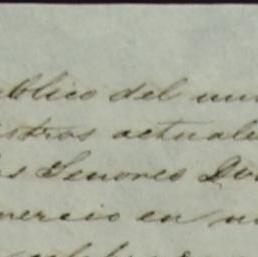 ublico del mu
stros actuale
s Senores Do
mercio en n